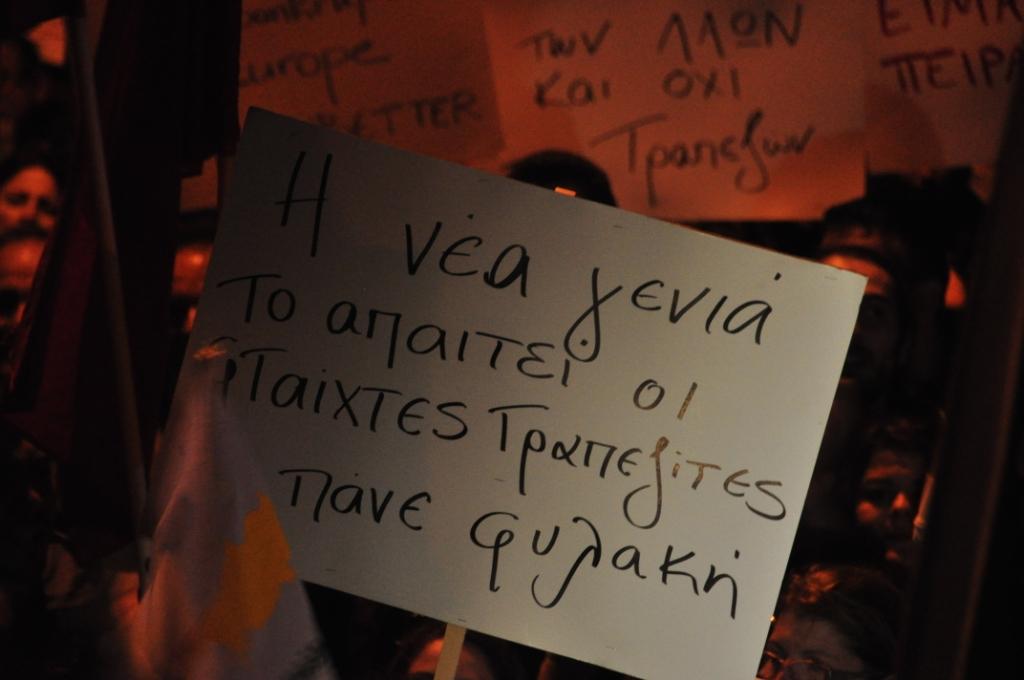 Europe
BETTER
των ΛΑΩΝ
και οχι
Τραπεζων
ΕΙΜΑ
ΠΕΙΡΑ
Η νέα γενιά
Το απαιτεί οι
φταιχτες Τραπεζιτες
πάνε φυλακή